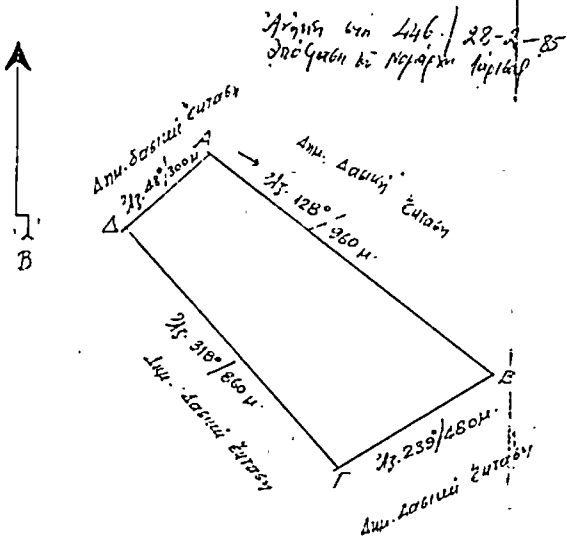 Ἀνήκει στη 446/28-2-85
ἀπόφαση κ. Νομάρχη
Δημ. δασική ἔκταση
Ἀζ. 48°/300 μ.
Α
Δημ. Δασική ἔκταση
Ἀζ. 128°/960 μ.
Δ
Β
Ἀζ. 318°/860 μ.
Δημ. Δασική ἔκταση
Β
Ἀζ. 239°/480 μ.
Γ
Δημ. Δασική ἔκταση